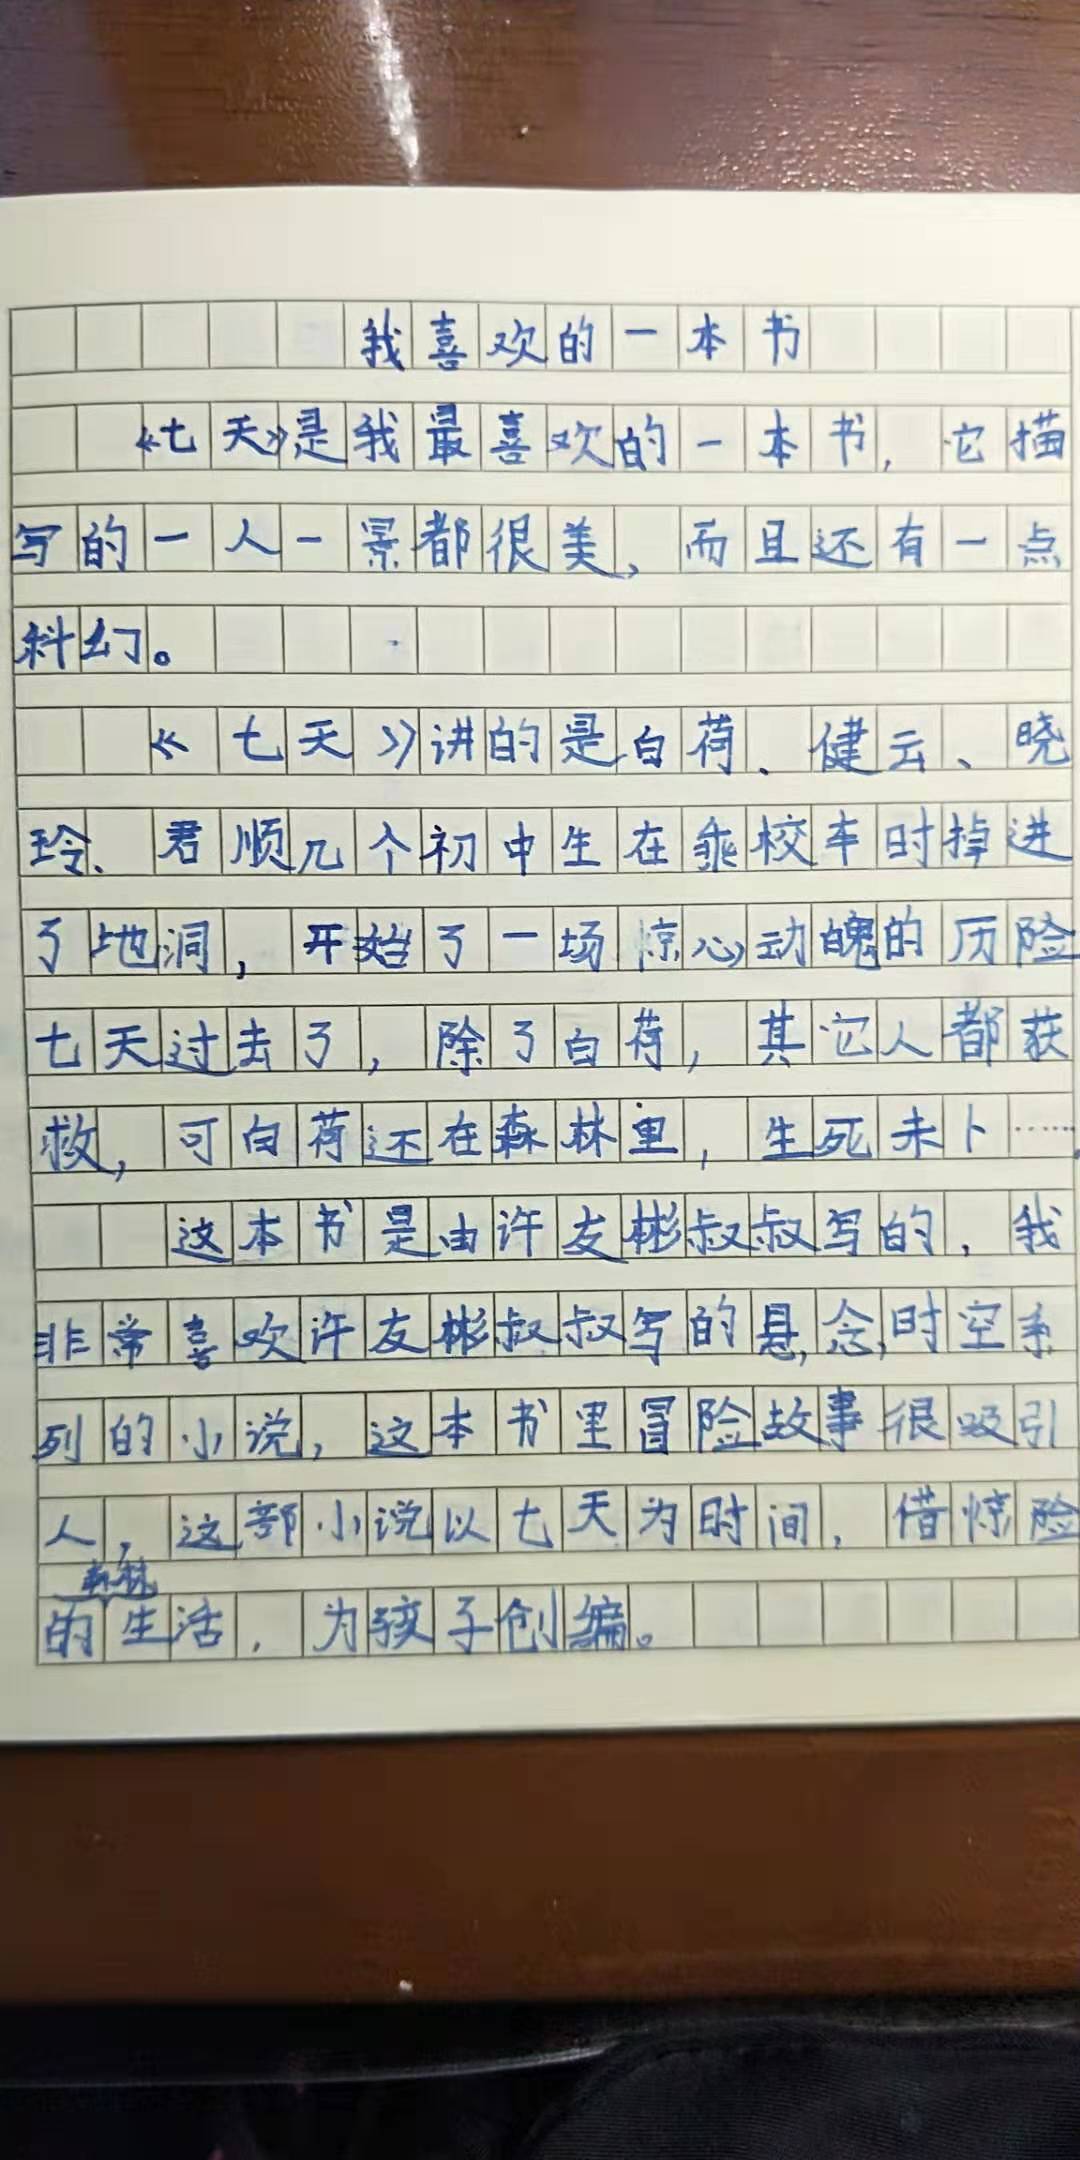 我喜欢的一本书
《七天》是我最喜欢的一本书，它描
写的一人一景都很美，而且还有一点
科幻。
《七天》讲的是白荷、健云、晓
玲、君顺几个初中生在乘校车时掉进
了地洞，开始了一场惊心动魄的历险
七天过去了，除了白荷，其它人都获
救，可白荷还在森林里，生死未卜……
这本书是由许友彬叔叔写的，我
非常喜欢许友彬叔叔写的悬念，时空系
列的小说，这本书里冒险故事很吸引
人，这部小说以七天为时间，借惊险
森林
的生活，为孩子创编。